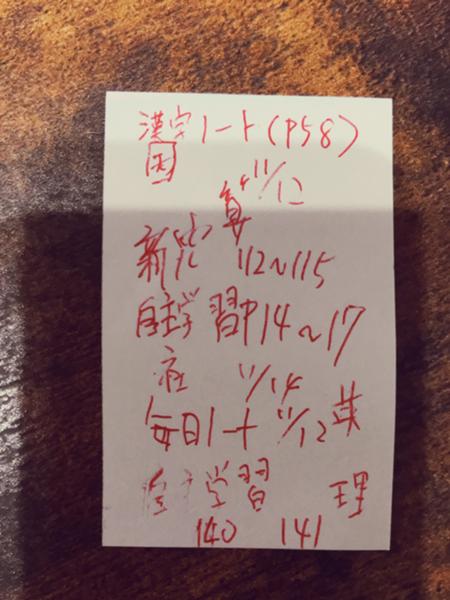 漢字ノート(P58)
国 11/12
算
新完 112~115
自主学習P14~17
社 11/14
毎日ノート 11/12 英
自主学習 理
140 141